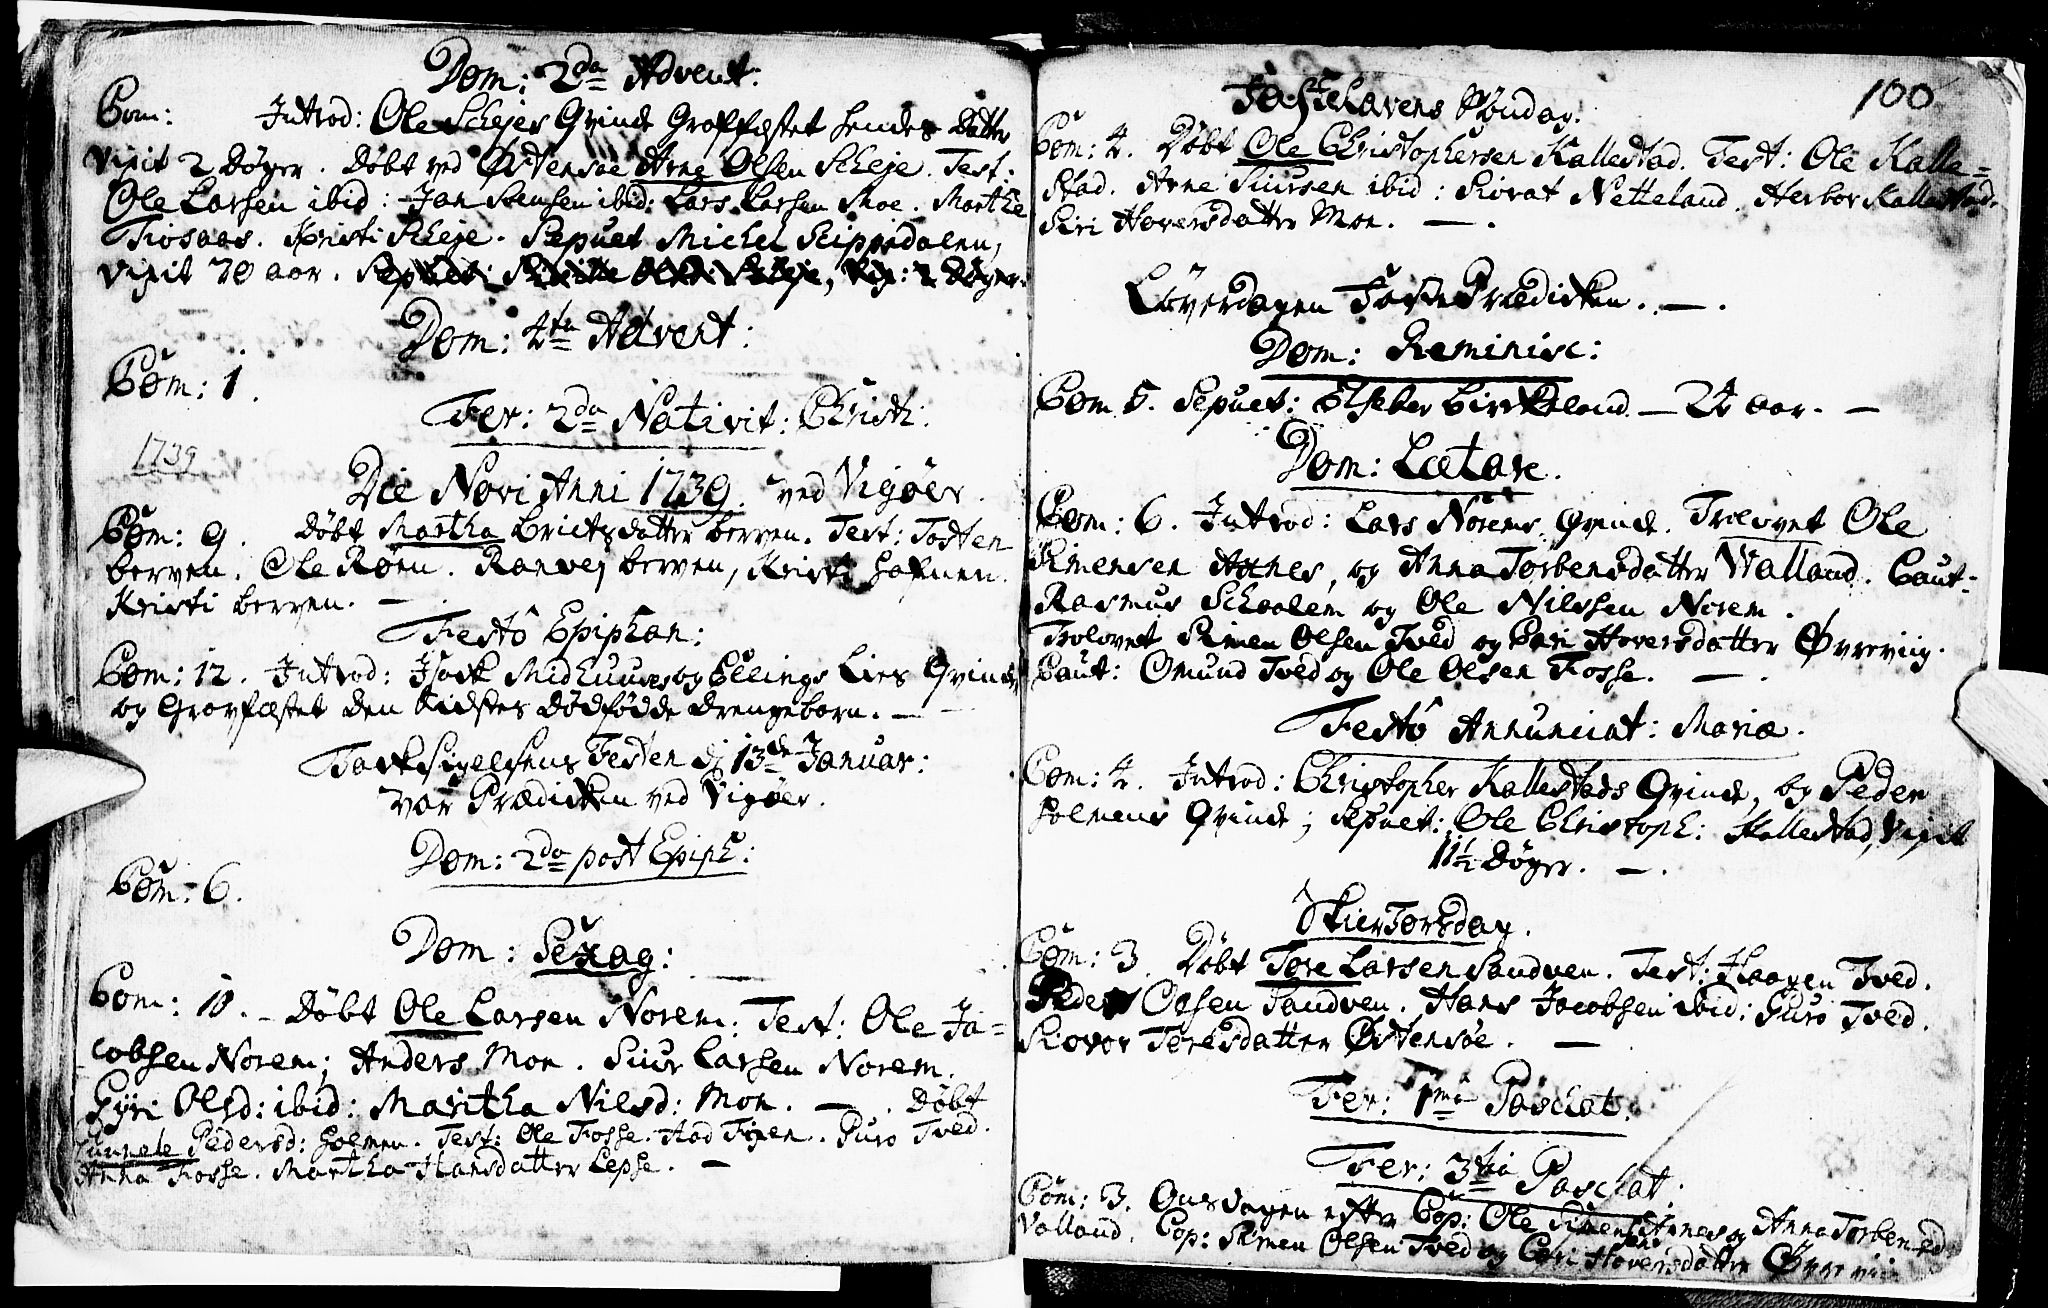 Dom: 2da Advent:
Com: Introd: Ole Schejes Qvinde Graffæstet hendes Datter
vixit 2 Døger. Døbt ved Østensøe Arne Olsen Scheje. Test:
Ole Larsen ibid: Jan Stensen ibid: Lars Larsen Moe. Marthe
Fiosaas. Kristi Scheje. Sepult Michel Scippedalen,
vixit 70 aar.
Dom: 4ta Advent:
Com: 1.
Fer: 2da Nativit: Christi:
1739
Die Novi Anni 1739. ved Vigøer.
Com: 9. Døbt Martha Brictsdatter Berven. Test: Tosten
Berven. Ole Røen. Ranvej Berven, Kristi
Kristi Berven. —
Festo Epiphan:
Com: 12. Introd: Isack Midhuuses og Ellings Lies Qvinde,
og Gravfæstet den sidstes dødfødde Drengebarn. —
Tacksigelsens Festen d: 13de Januar:
var Prædicken ved Vigøer.
Dom: 2da post Epiph:
Com: 6.
Dom: Sexag:
Com: 10. – Døbt Ole Larsen Norem: Test: Ole Ja-
cobsen Norem; Anders Moe. Siur Larsen Norem.
Gyri Olsd: ibid: Maritha Nilsd: Moe. — . Døbt
Gunnele Pedersd: Holmen. Test: Ole Fosse. Aad Fixen. Guro Tved.
Anna Fosse. Martha Hansdatter Lepse. —
100
Fastelavens Søndag:
Com: 4. Døbt Ole Christophersen Kallestad. Test: Ole Kalle-
stad. Arne Siursen ibid: Siovat Netteland. Herbor Kallestad.
Siri Haversdatter Moe. — .
Løverdagen Faste Prædicken. — .
Dom: Reminisc:
Com 5. Sepult: Elseber Birkeland — 24 aar. —
Dom: Lætare.
Com: 6. Introd: Lars Norems Qvinde. Trolovet Ole
Simensen Aanes, og Anna Torbensdatter Walland. Caut:
Rasmus Schaalem og Ole Nilssen Norem.
Trolovet Simen Olsen Tved og Cari Haversdatter Øvreviig.
Caut: Omund Tved og Ole Olsen Fosse. — .
Festo Annunciat: Mariæ.
Com: 4. Introd: Christopher Kallestads Qvinde, og Peder
Holmens Qvinde; Sepult: Ole Christoph: Kallestad, vixit
11½ Døger. — .
Skiertorsdag.
Com: 3. Døbt Tore Larsen Sandven. Test: Haagen Tved.
Peder Olsen Sandven. Hans Jacobsen ibid: Guro Tved.
Siovor Toresdatter Østensøe. —
Fer: 1ma Paschat:
Fer: 3tia Paschat:
Com: 3. Onsdagen efter Cop: Ole Simens: Aanes og Anna Torbensd
Valland. Cop: Simen Olsen Tved og Cari Haversdatter Øvreviig